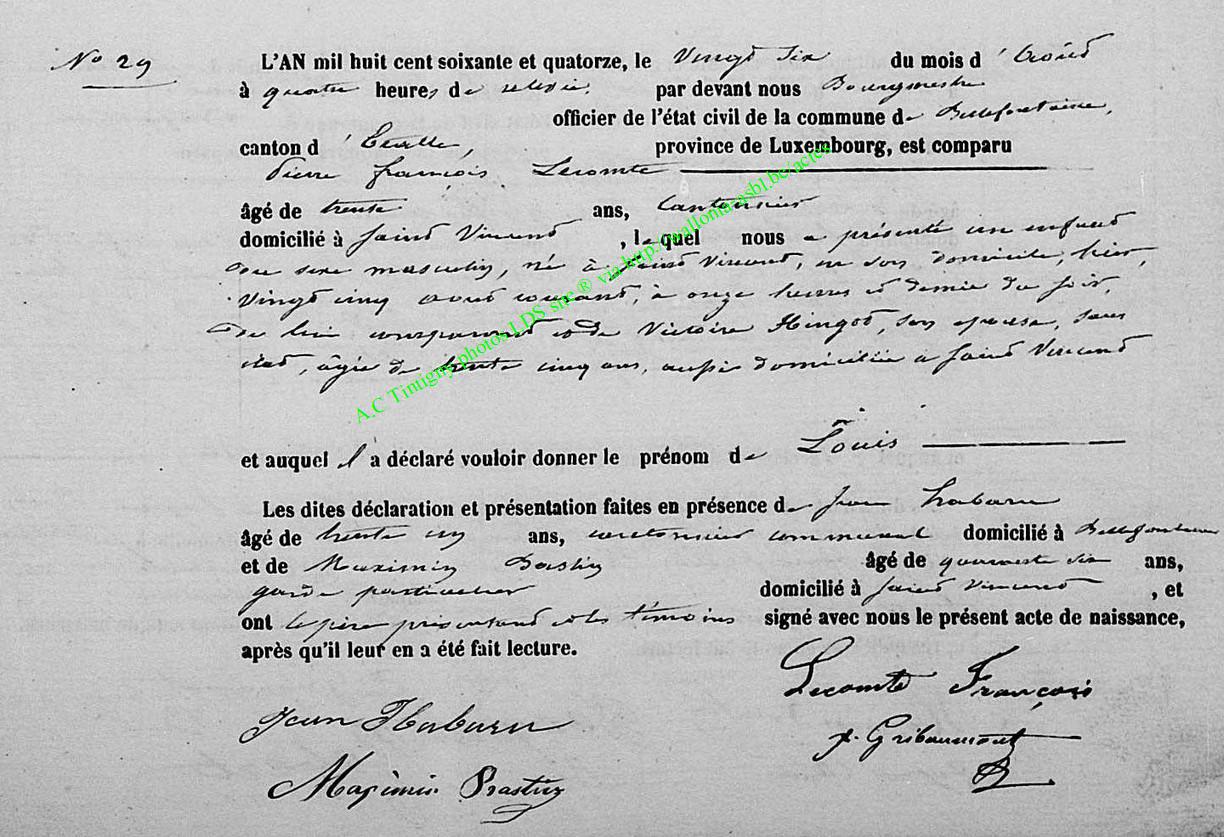 No 29
L'AN mil huit cent soixante et quatorze, le Vingt six du mois d'Août
à quatre heures de relevée, par devant nous Bourgmestre
officier de l'état civil de la commune de Bellefontaine,
canton d'Etalle, province de Luxembourg, est comparu
Pierre François Lecomte
âgé de trente ans, Cantonnier
domicilié à Saint Vincent, lequel nous a présenté un enfant
du sexe masculin, né à Saint Vincent, en son domicile, hier,
Vingt cinq août courant, à onze heures et demie du soir,
de lui comparant et de Victoire Hingot, son épouse, sans
état, âgée de trente cinq ans, aussi domiciliée à Saint Vincent
et auquel il a déclaré vouloir donner le prénom de Louis
Les dites déclaration et présentation faites en présence de Jean
âgé de trente ans, cantonnier communal domicilié à Bellefontaine
et de Maximin Bastin âgé de quarante six ans,
garde particulier domicilié à Saint Vincent, et
ont le père présentant et les témoins signé avec nous le présent acte de naissance,
après qu'il leur en a été fait lecture.
Lecomte François
Jean
Gribaumont
Maximin Bastin
A.C Tintigny photos LDS site ® via http://wallonia.asbl.be/actes